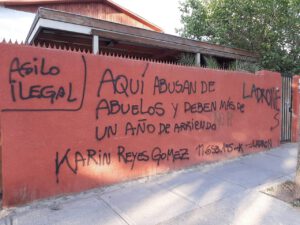 ASILO
ILEGAL
AQUÍ ABUSAN DE
ABUELOS Y DEBEN MÁS DE
UN AÑO DE ARRIENDO
KARIN REYES GOMEZ
LADRONES